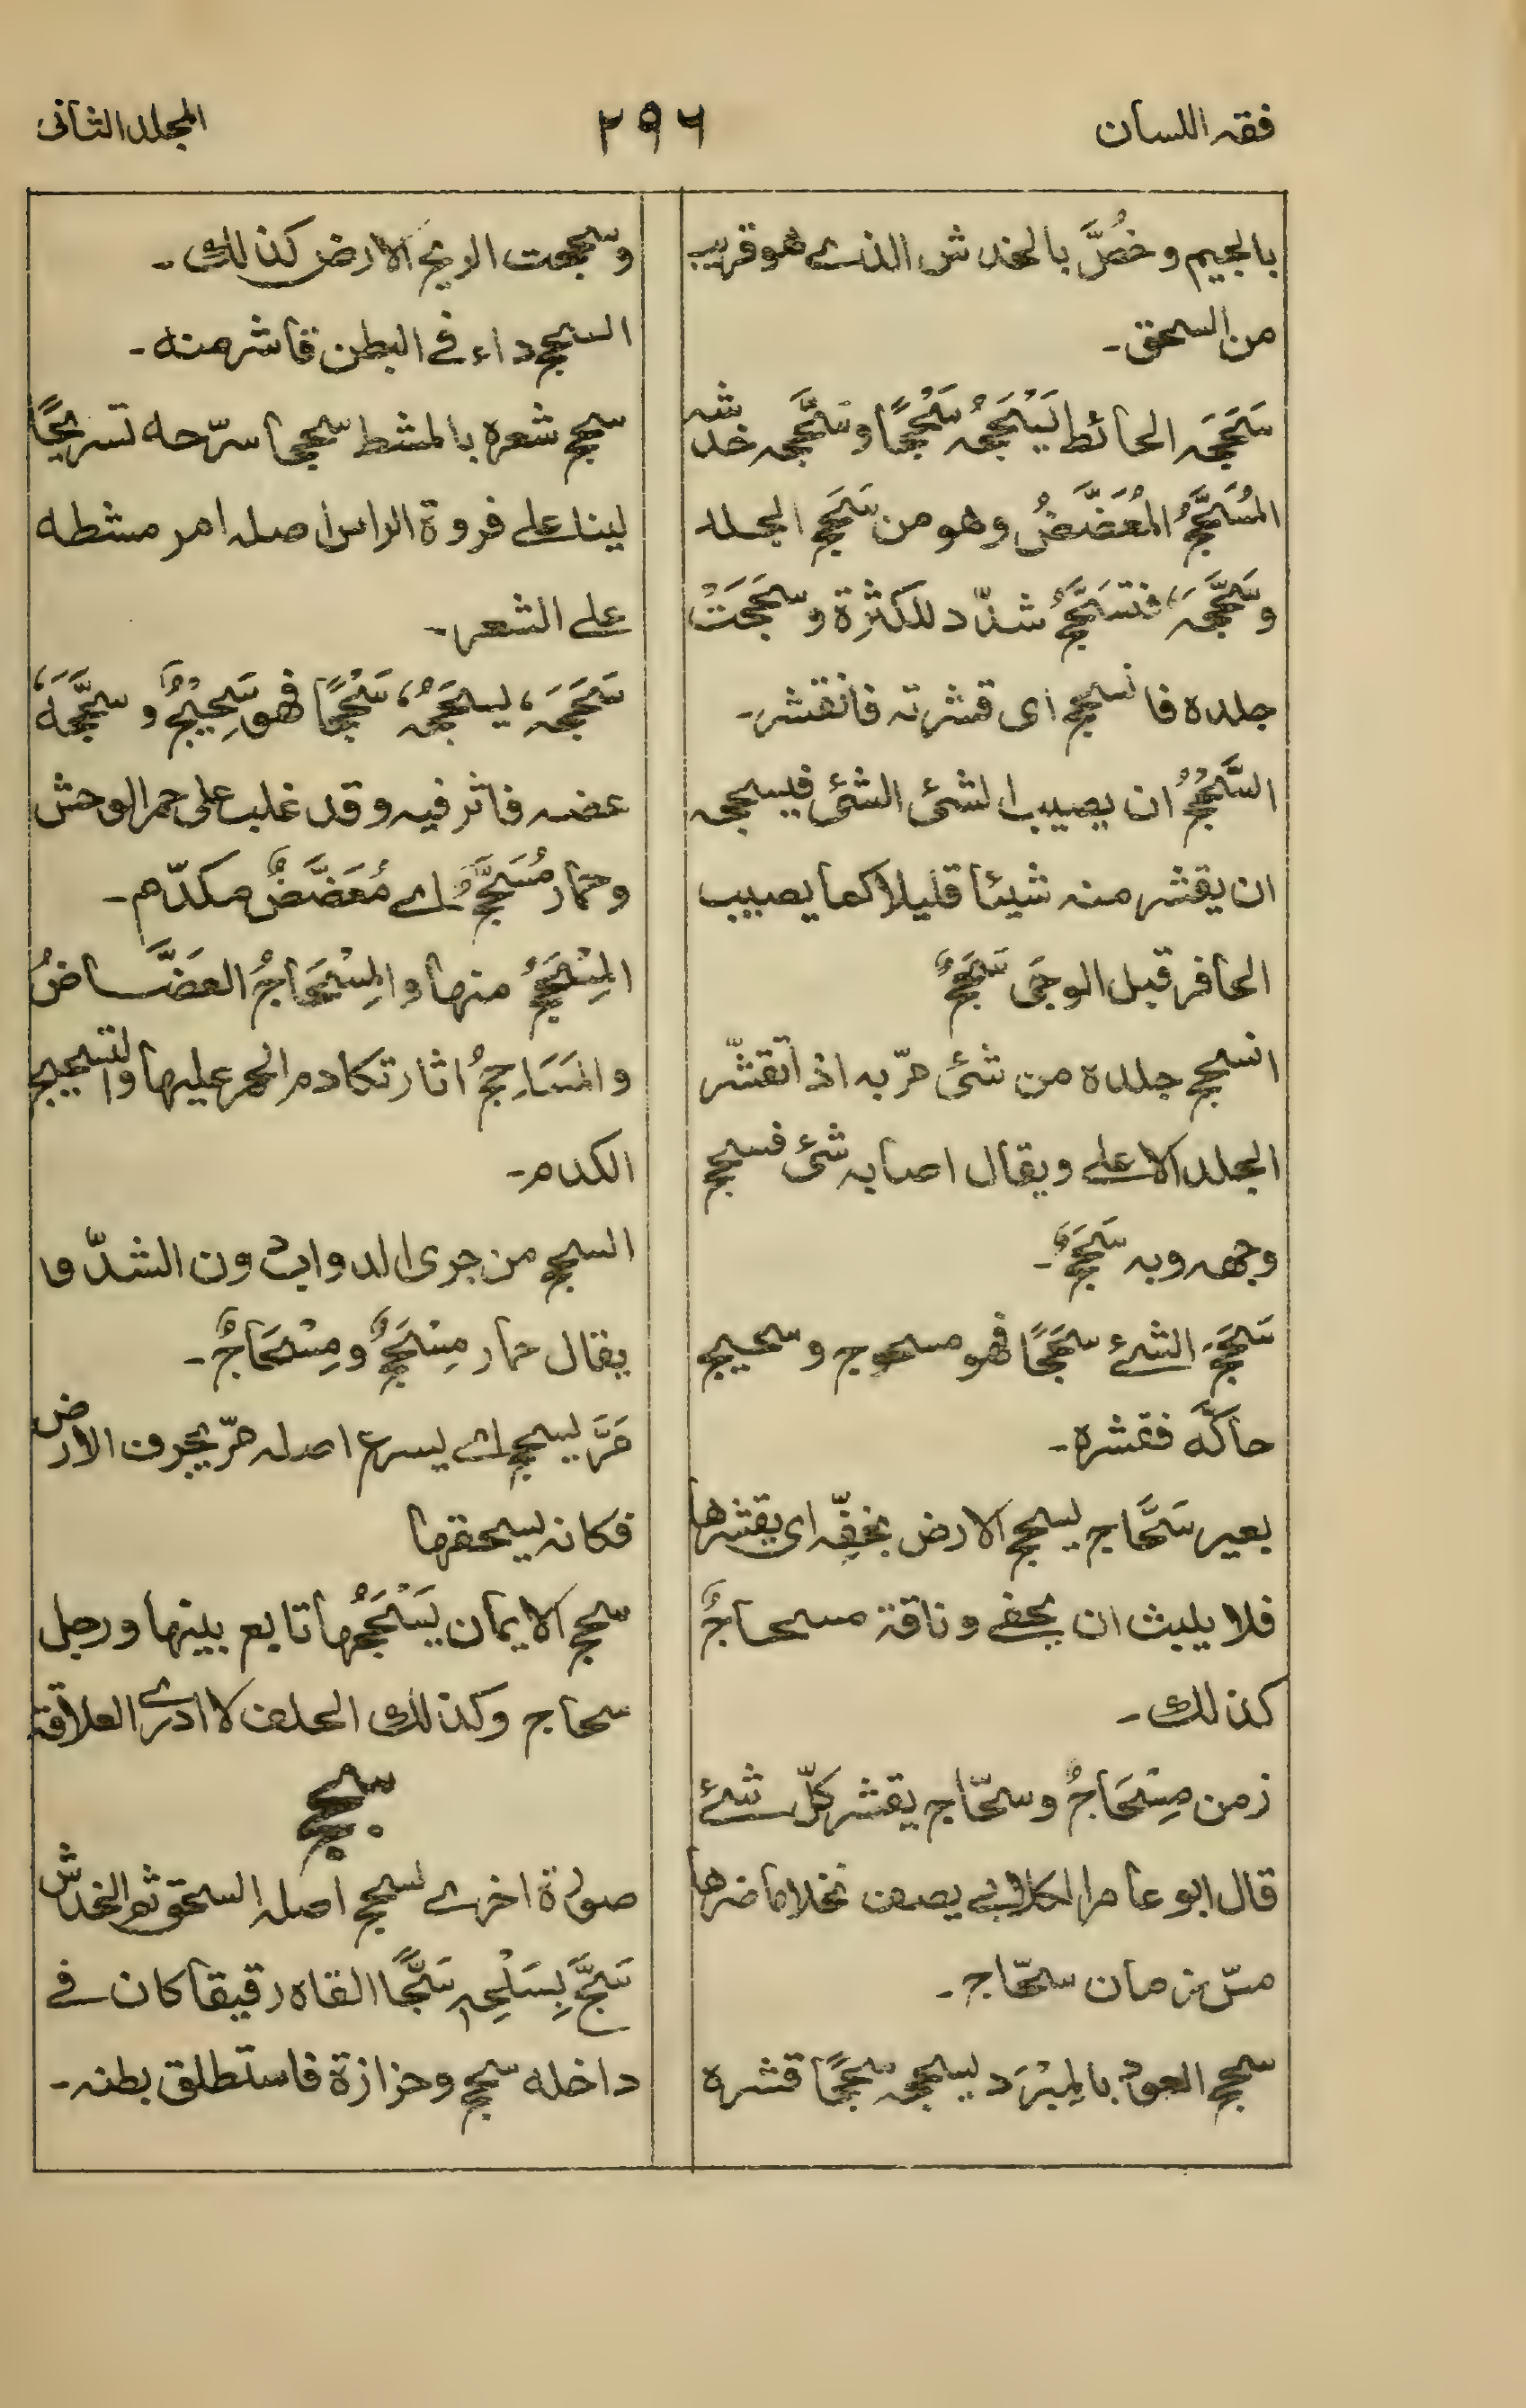 فقه اللسان
۲۵۶
المجلد الثانی
بالجیم و خُصَّ بالخدش الذے هو قریب
من السحق۔
سَحَجَه الحائط یَسْحَجُه سَحْجًا و سَحَّجه خدشه
المُسَحَّجُ المُعَضَّضُ وهو من سَحَجَ الجلد
و سَحَّجَه، فتسَحَّجَ شدّد للکثرة و سَحَجَتْ
جلده فانسحج ای قشرته فانقشر۔
السَّحْجُ ان یصیب الشئ الشئ فیسحجه
ان یقشر منه شیئا قلیلا کما یصیب
الحافر قبل الوجَی سَحَجٌ
انسحج جلده من شئ مرّ به اذا تقشّر
الجلد الاعلے و یقال اصابه شئ فسحج
وجهه و به سَحَجٌ۔
سَحَجَ الشئ سحَجًا فهو مسحوج و سحیج
حاکَّه فقشره۔
بعیر سَحَّاج یسحج الارض بخفّه ای یقشرها
فلا یلبث ان یحفے و ناقة مسحاجٌ
کذلك۔
زمن مِسْحَاجٌ و سحّاج یقشر کلّ شئ
قال ابو عامر الکلابی یصف نخلا ما ضرها
مسّ زمان سحّاج۔
سحج العود بالمِبْرَد یسحجه سَحجًا قشره
و سحجت الریح الارض کذلك۔
السحج داء فے البطن قاشر منه۔
سحج شعره بالمشط سحجا سرّحه تسریحًا
لینا علے فروة الراس اصله امر مشطه
علے الشعر۔
سَحَجَه، یسحَجُه، سَحْجًا فهو سَحِیْجٌ و سحَّجَهُ،
عضه فاثر فیه و قد غلب علی حمر الوحش
و حمار مُسَحَّجٌ اے مُعَضَّضٌ مکدّم۔
المِسْحَجُ منها و المِسْحَاجُ العَضَّاضُ
و المَسَاحِجُ اثار تکادم الحمر علیها و التسحیج
الکدم۔
السحج من جری الدواب دون الشدّ و
یقال حمار مِسْحَجٌ و مِسْحَاجٌ۔
مَرَّ یسحج اے یسرع اصله مرّ یجرف الارض
فکانه یسحقها
سحج الایمان یَسْحَجُها تابع بینها و رجل
سحاج و کذلك الحلف لا ادرے العلاقة
سجج
صورة اخرے لسحج اصله السحق ثم الخدش
سَجَّ بِسَلْحِه سَجًّا القاه رقیقا کان فے
داخله سحج و حزازة فاستطلق بطنه۔